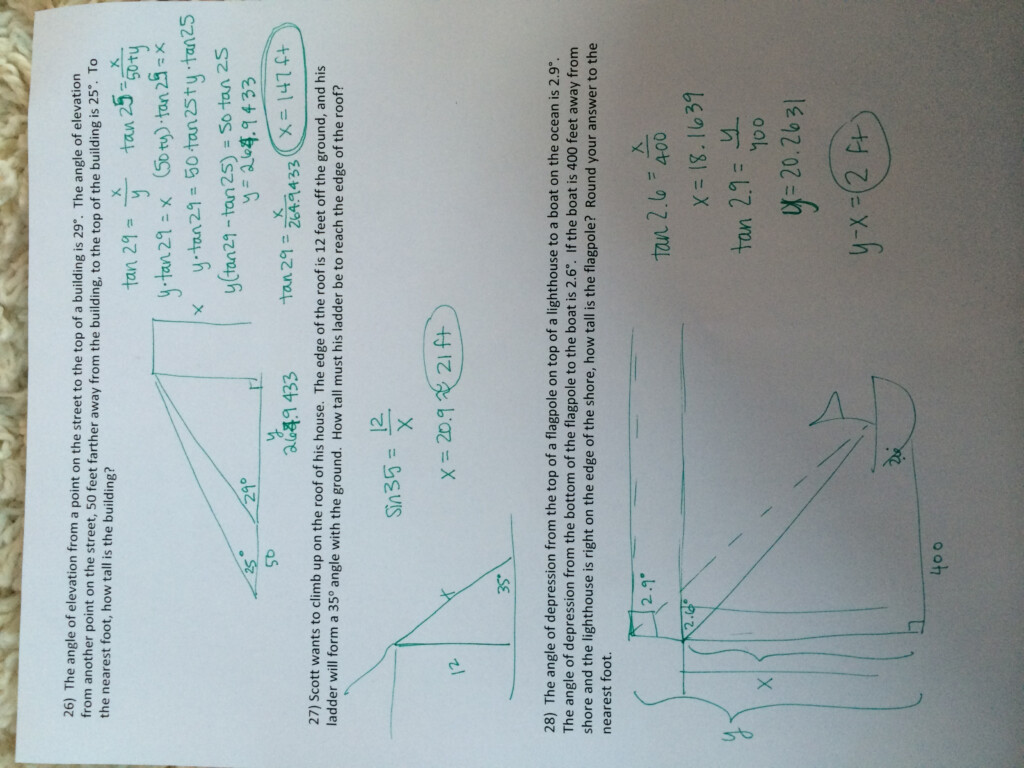 26) The angle of elevation from a point on the street to the top of a building is 29°. The angle of elevation
from another point on the street, 50 feet farther away from the building, to the top of the building is 25°. To
the nearest foot, how tall is the building?
tan 29 = x/y   tan 25 = x/50+y
y·tan29 = x   (50+y)·tan25 = x
y·tan29 = 50tan25+y·tan25
y(tan29-tan25) = 50tan25
y = 264.9433
tan29 = x/264.9433   x = 147 ft
25°
29°
50
y
264.9433
x
27) Scott wants to climb up on the roof of his house. The edge of the roof is 12 feet off the ground, and his
ladder will form a 35° angle with the ground. How tall must his ladder be to reach the edge of the roof?
12
x
35°
sin35 = 12/x
x = 20.9 ≈ 21 ft
28) The angle of depression from the top of a flagpole on top of a lighthouse to a boat on the ocean is 2.9°.
The angle of depression from the bottom of the flagpole to the boat is 2.6°. If the boat is 400 feet away from
shore and the lighthouse is right on the edge of the shore, how tall is the flagpole? Round your answer to the
nearest foot.
2.9°
2.6°
y
x
400
tan 2.6 = x/400
x = 18.1639
tan 2.9 = y/400
y = 20.2631
y-x = 2 ft